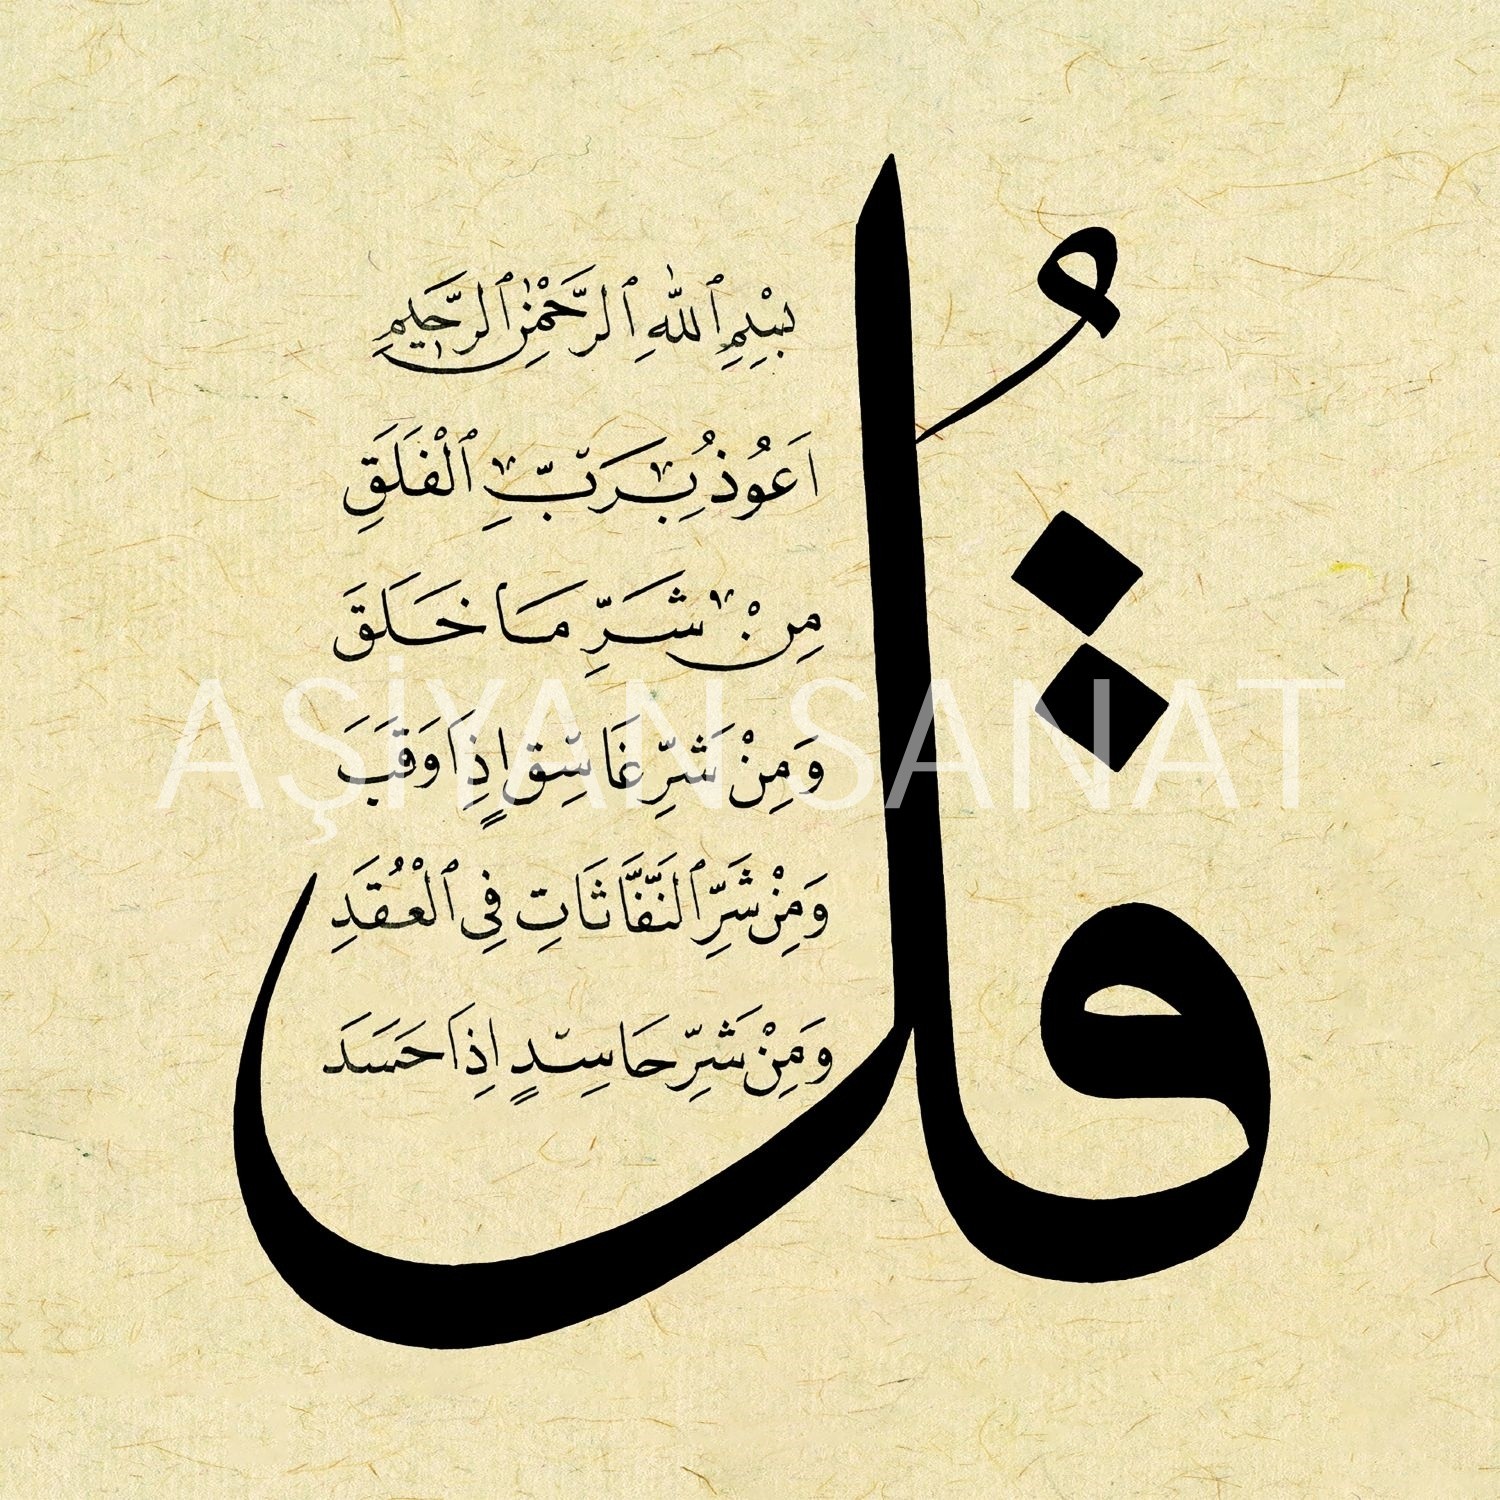 قُل
بِسْمِ ٱللّٰهِ ٱلرَّحْمٰنِ ٱلرَّحِيمِ
اَعُوذُ بِرَبِّ ٱلْفَلَقِ
مِنْ شَرِّ مَا خَلَقَ
وَمِنْ شَرِّ غَاسِقٍ اِذَا وَقَبَ
وَمِنْ شَرِّ ٱلنَّفَّاثَاتِ فِى ٱلْعُقَدِ
وَمِنْ شَرِّ حَاسِدٍ اِذَا حَسَدَ
AŞİYAN SANAT